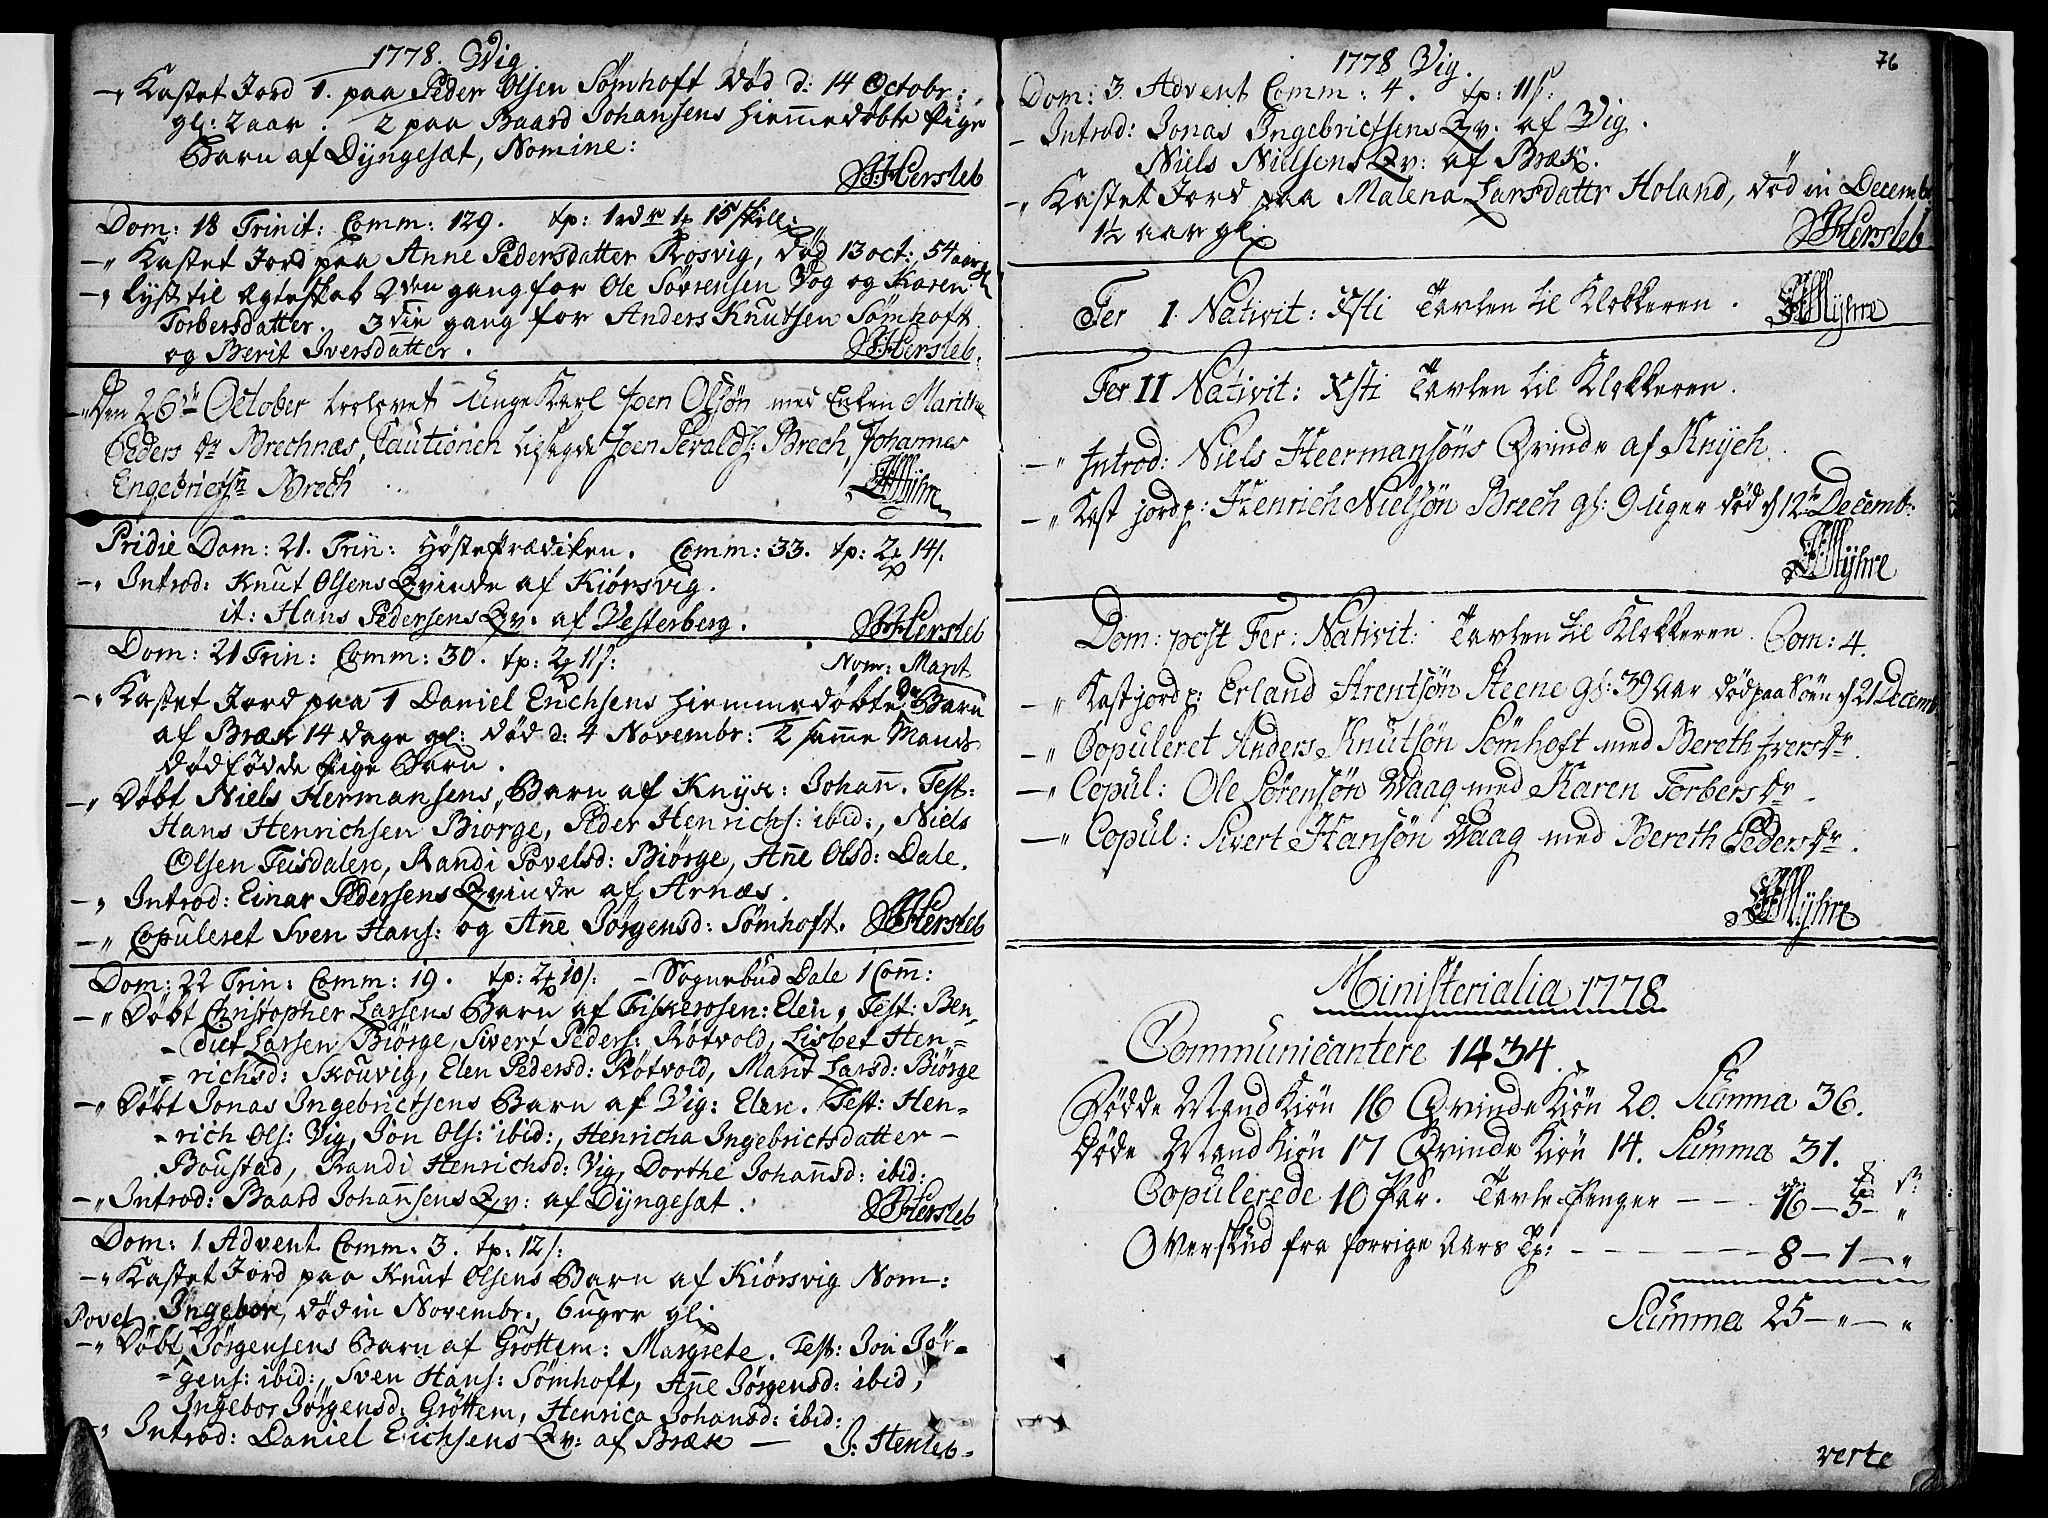 1778. Vig
-, Kastet Jord 1. paa Peder Olsen Sømhoft død d: 14 Octobr:
gl: 2 aar. 2 paa Baard Johansens hiemmedøbte Pige
Barn af Dyngesæt, Nomine:
Hersleb
Dom: 18 Trinit: Comm: 129. tp: 1 rdr 1 15 skill:
-„ Kastet Jord paa Anne Pedersdatter Kosvig, død 13 oct: 54 aar gl
-„ Lyst til Ægteskab 2den gang for Ole Sørensen Vog og Karen
Torbersdatter. 3die gang for Anders Knutsen Sømhoft
og Berit Iversdatter.
Hersleb.
-„ Den 26de October trolovet Unge Karl Joen Olsøn med Enken Marithe
Peders dr Brechnæs, Cautionen tilsagde Joen Sevalds: Brech, Johannes
Engebrictsn Brech
Myhre
Pridie Dom: 21. Trin: Høsteprædiken. Comm: 33. tp: 2 14/.
-„ Introd: Knut Olsens Qvinde af Kiørsvig.
it: Hans Pedersens Qv. af Vesterberg.
Hersleb
Dom: 21 Trin: Comm: 30. tp: 2 11/: Nom: Marit
-„ Kastet Jord paa 1 Daniel Erichsens hiemmedøbte Barn
af Bræk 14 dage gl: død d: 4 Novembr: 2 samme Mands
dødfødde Pige Barn.
-„ Døbt Niels Hermansens Barn af Knyk: Johan. Test:
Hans Henrichsen Biorge, Peder Henrichs: ibid:, Niels
Olsen Teisdalen, Randi Povelsd: Biørge, Ane Olsd: Dale.
-„ Introd: Einar Pedersens Qvinde af Arnæs.
-„ Copuleret Sven Hans: og Ane Jørgensd: Sømhoft. Hersleb
Dom: 22 Trin: Comm: 19. tp: 2 10/: - Sognebud Dale 1 Com:
-„ Døbt Christopher Larsens Barn af Fiskerosen: Elen, Test: Ben-
-dict Larsen Biørge, Sivert Peders: Røtvold, Lisbet Hen-
=richsd: Skouvig, Elen Pedersd: Røtvold, Marit Larsd: Biørge
-„ Døbt Jonas Ingebrictsens Barn af Vig: Elen. Test: Hen-
-rich Ols: Vig, Jon Ols: ibid:, Henricha Ingebrictsdatter -
Boustad, Randi Henrichsd: Vig, Dorthe Johansd: ibid:
-„ Introd: Baard Johansens Qv: af Dyngesæt.
Hersleb
Dom: 1 Advent Comm: 3. tp: 12/:
-„ Kastet Jord paa Knut Olsens Barn af Kiørsvig Nom:
Ingebor, død in Novembr:, 6 uger gl:
Povel
-„ Døbt Jørgensens Barn af Grøttem: Margrete. Test: Jon Jør-
=gens: ibid:, Sven Hans: Sømhoft, Ane Jørgensd: ibid,
Ingebor Jørgensd: Grøttem, Henrica Johansd: ibid:
-„ Introd: Daniel Erichsens Qv: af Bræk - J: Hersleb-
76
1778 Vig.
Dom: 3 Advent Comm: 4. tp: 11/:
- Introd: Jonas Ingebrictsens Qv: af Vig.
Niels Nielsens Qv: af Bræk.
-„ Kastet Jord paa Malena Larsdattr Holand, død in Decembr
1½ aar gl:
Hersleb
Fer I. Nativit: Xsti Tavlen til Klokkeren. Myhre
Fer II Nativit: Xsti Tavlen til Klokkeren.
-„ Introd: Niels Heermansøns Qvinde af Knych.
-„ Kast jord p: Henrich Nielsøn Brech gl: 9 Uger død d 12te Decemb:
Myhre
Dom: post Fer: Nativit: Tavlen til Klokkeren. Com: 4.
-„ Kast jord p: Erland Arentsøn Steene gl: 39 Aar død paa Søen d 21 Decemb
-„ Copuleret Anders Knutsøn Sømhoft med Bereth Ivers dr.
-„ Copul: Ole Sørensøn Waag med Karen Torbers dr
-„ Copul: Sivert Hansøn Waag med Bereth Peders dr.
Myhre
Ministerialia 1778
Communicantere 1434.
Fødde Mand Kiøn 16 Qvinde Kiøn 20. Summa 36.
Døde Mand Kiøn 17 Qvinde Kiøn 14. Summa 31.
Copulerede 10 Par. Tavle Penger - - - 16 - 5 - „
Overskud fra forrige Aars Tp: - - - - - 8 - 1 - „
Summa 25 - „ - „
verte